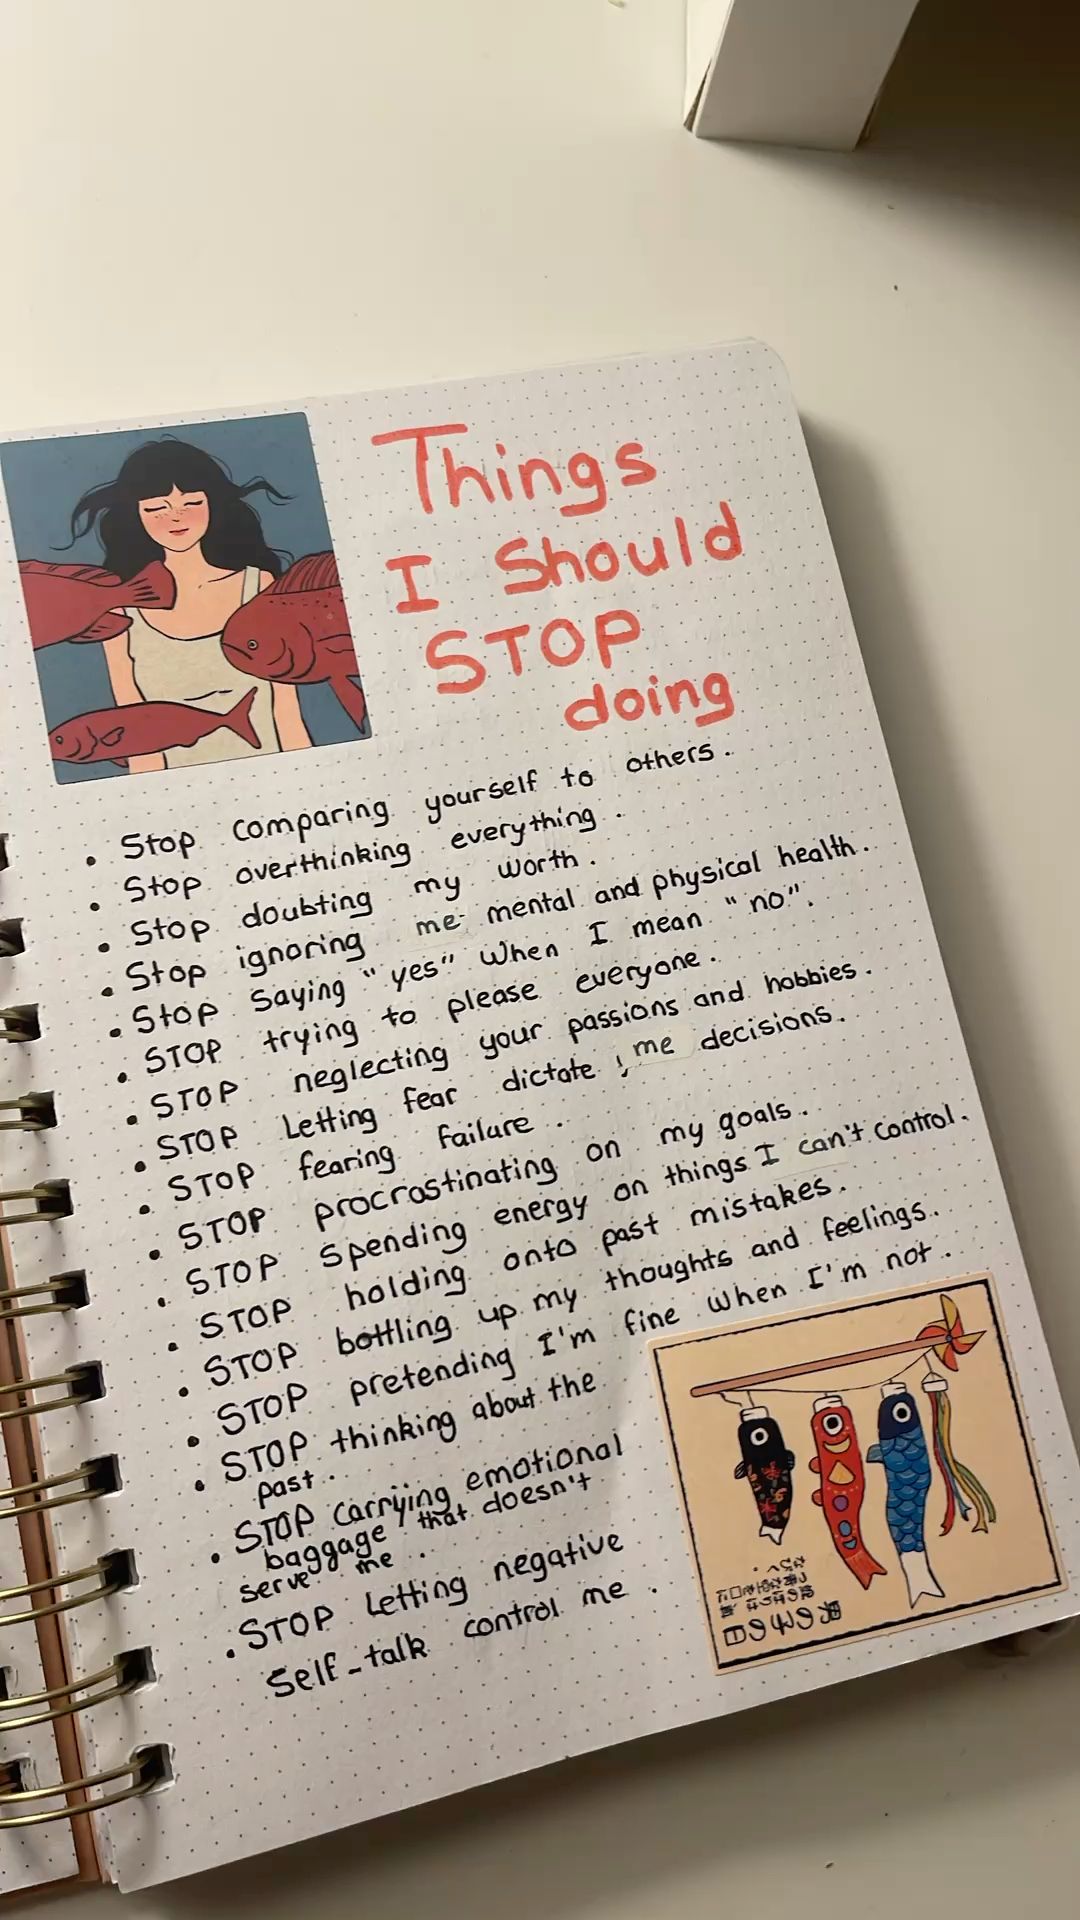 Things
I Should
STOP
doing
• Stop comparing yourself to others.
• Stop overthinking everything.
• Stop doubting my worth.
• Stop ignoring me mental and physical health.
• Stop Saying "yes" when I mean "no".
• STOP trying to please everyone.
• STOP neglecting your passions and hobbies.
• STOP Letting fear dictate me decisions.
• STOP fearing failure.
• STOP procrastinating on my goals.
• STOP spending energy on things I can't control.
• STOP holding onto past mistakes.
• STOP bottling up my thoughts and feelings.
• STOP pretending I'm fine when I'm not.
• STOP thinking about the
past.
• STOP carryiing emotional
baggage that doesn't
serve me.
• STOP Letting negative
Self-talk control me.